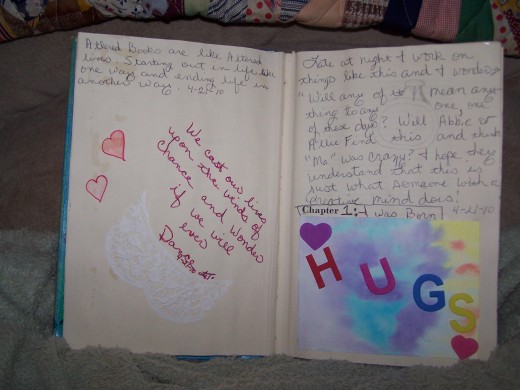 Altered Books are like Altered
lives. Starting out in life like
one way and ending life in
another way. 4-21-10
We cast our lives
upon the winds of
Chance and Wonder
if we will
ever
Dance
Late at night I work on
things like this and I wonder
"Will any of it mean any-
thing to any one, one
of these days? Will Abbie or
Allie Find this and think
"Me" was crazy? I hope they
understand that this is
just what someone with a
creative mind does!
Chapter 1:- I was Born 4-21-10
HUGS